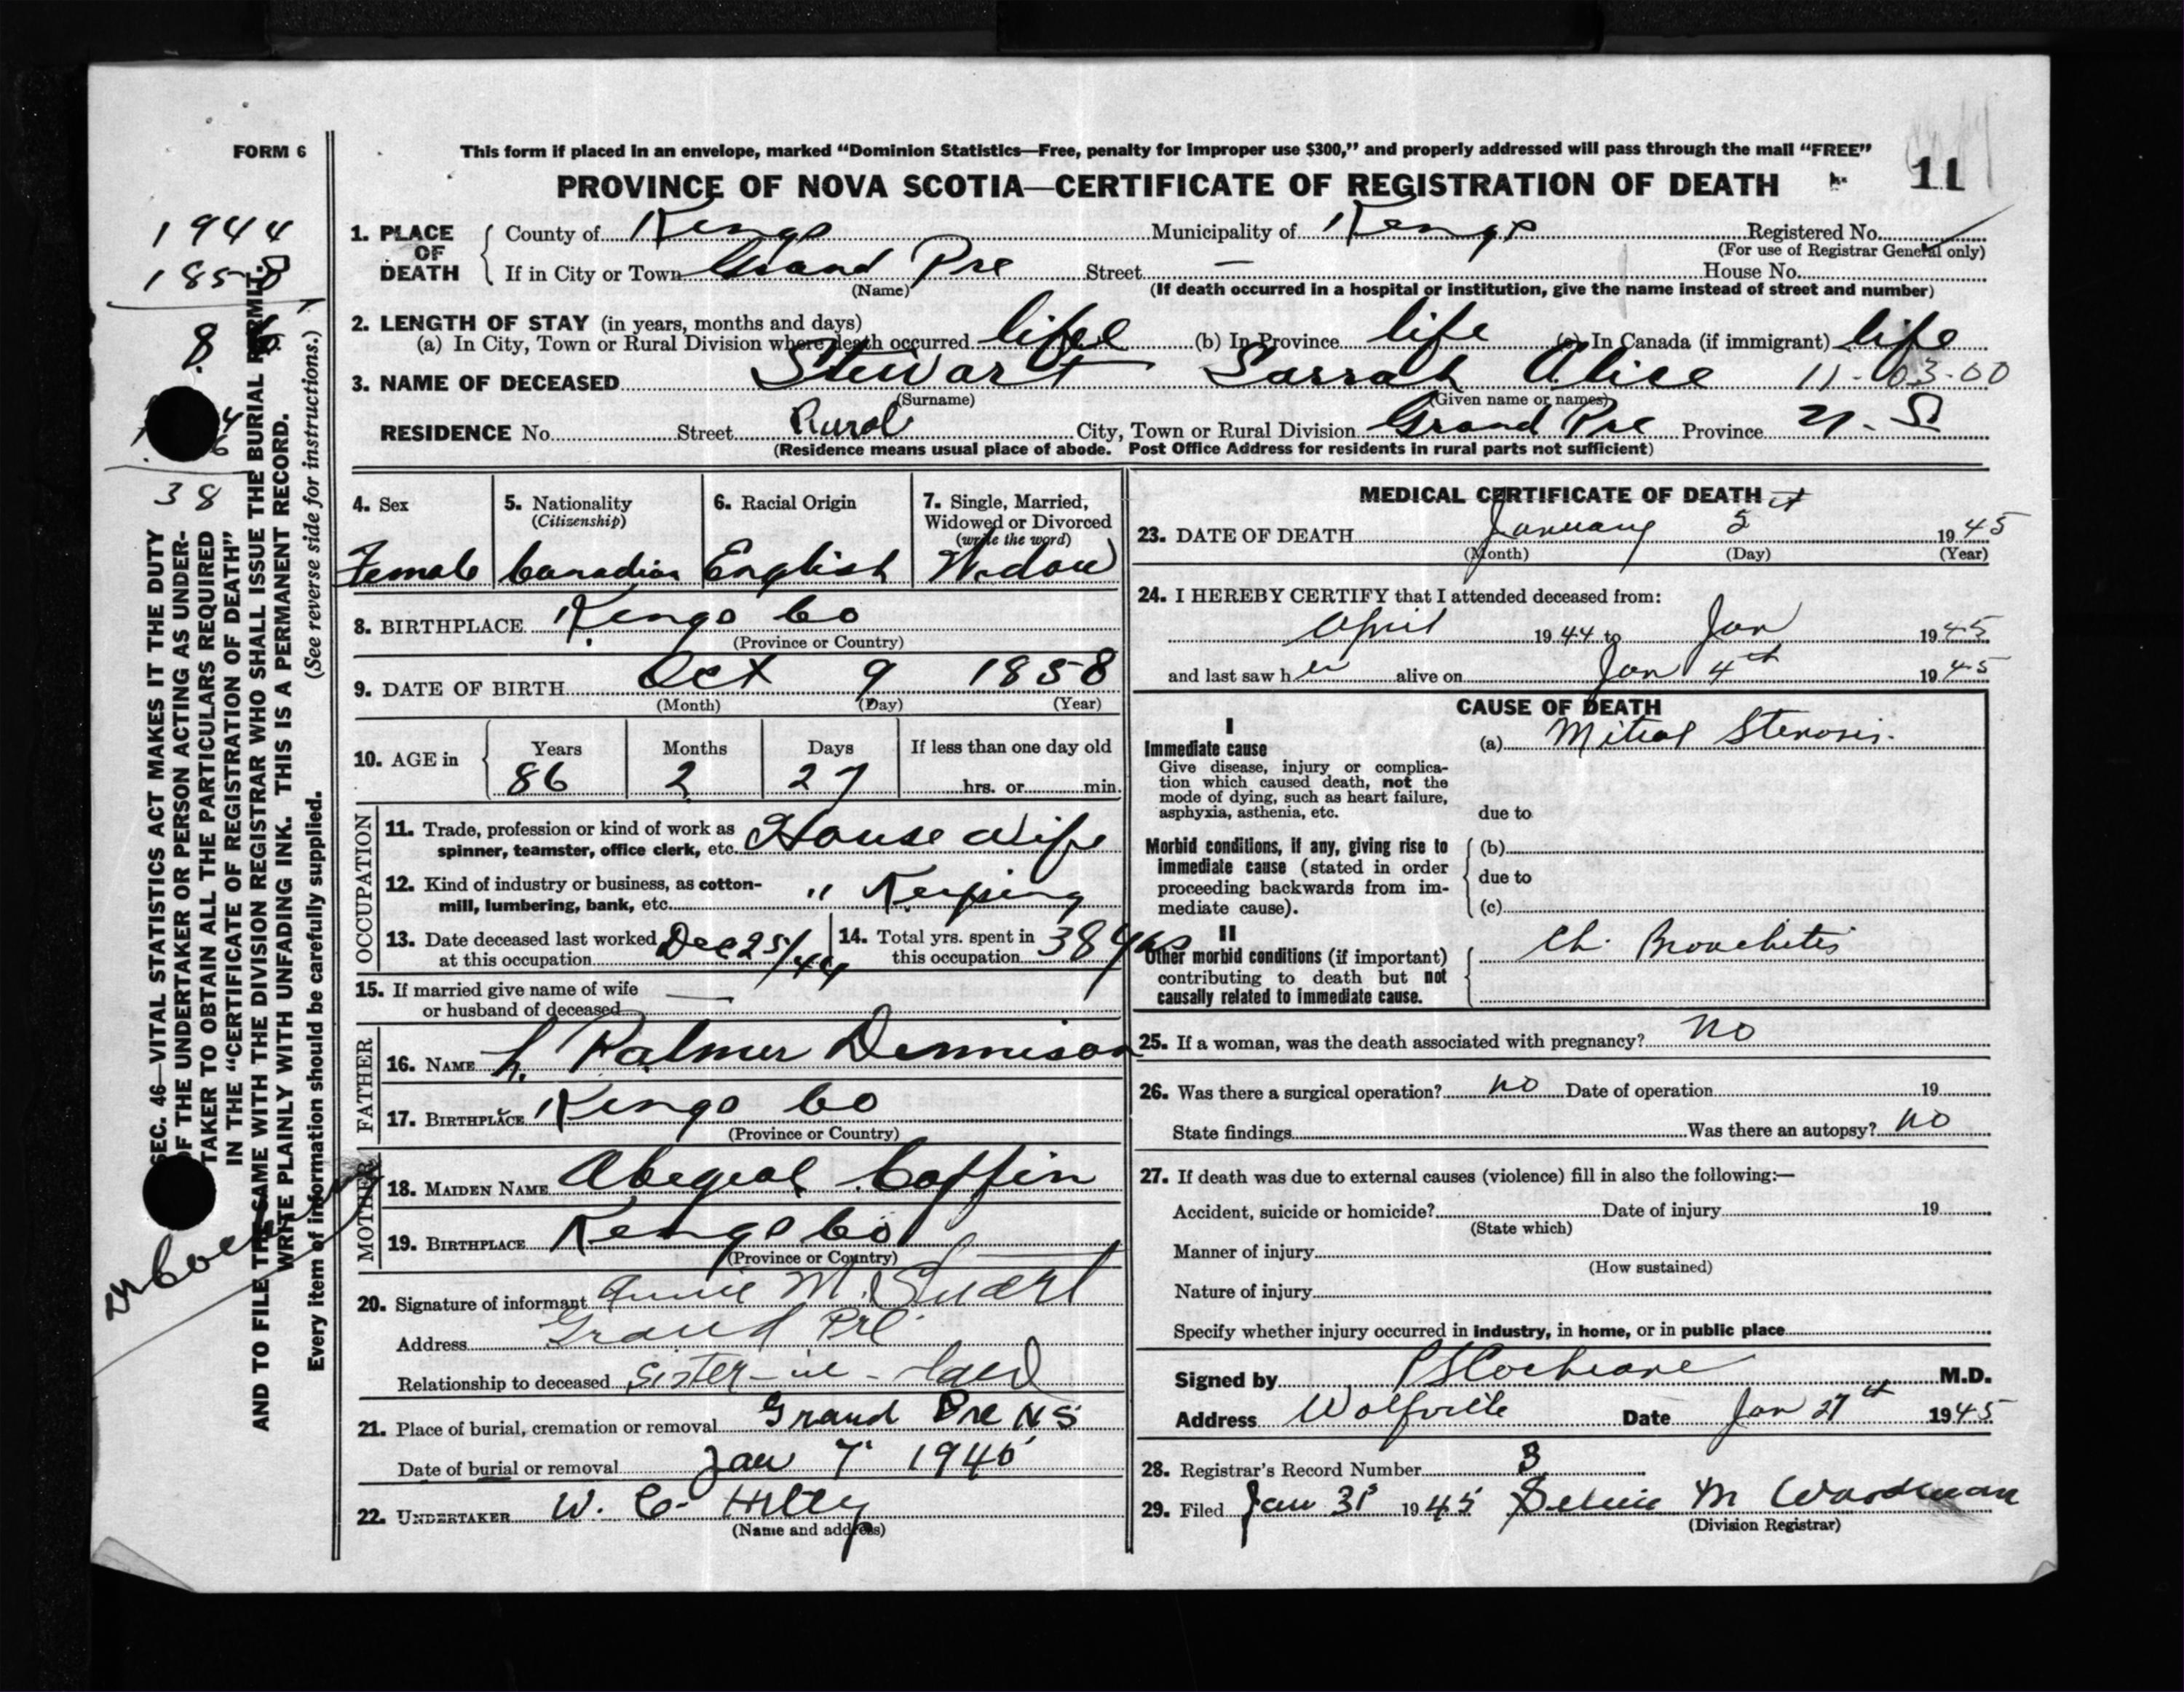 FORM 6
This form if placed in an envelope, marked “Dominion Statistics—Free, penalty for improper use $300,” and properly addressed will pass through the mail “FREE”
PROVINCE OF NOVA SCOTIA—CERTIFICATE OF REGISTRATION OF DEATH 11
1. PLACE OF DEATH
County of Kings Municipality of Kings Registered No.
(For use of Registrar General only)
If in City or Town Grand Pre Street — House No.
(Name) (If death occurred in a hospital or institution, give the name instead of street and number)
2. LENGTH OF STAY (in years, months and days)
(a) In City, Town or Rural Division where death occurred life (b) In Province life (c) In Canada (if immigrant) life
3. NAME OF DECEASED Stewart Sarrah Alice 11-03-00
(Surname) (Given name or names)
RESIDENCE No. Street Rural City, Town or Rural Division Grand Pre Province N. S
(Residence means usual place of abode. Post Office Address for residents in rural parts not sufficient)
4. Sex
Female
5. Nationality
(Citizenship)
Canadian
6. Racial Origin
English
7. Single, Married,
Widowed or Divorced
(write the word)
Widow
8. BIRTHPLACE Kings Co
(Province or Country)
9. DATE OF BIRTH Oct 9 1858
(Month) (Day) (Year)
10. AGE in
Years Months Days If less than one day old
86 2 27 hrs. or min.
OCCUPATION
11. Trade, profession or kind of work as
spinner, teamster, office clerk, etc. House wife
12. Kind of industry or business, as cotton-
mill, lumbering, bank, etc. " Keeping
13. Date deceased last worked
at this occupation Dec 25/44
14. Total yrs. spent in
this occupation 38 yrs
15. If married give name of wife
or husband of deceased —
FATHER
16. NAME Palmer Dennison
17. BIRTHPLACE Kings Co
(Province or Country)
MOTHER
18. MAIDEN NAME Abegeal Coffin
19. BIRTHPLACE Kings Co
(Province or Country)
20. Signature of informant Annie M. Stuart
Address Grand Pre
Relationship to deceased Sister-in-law
21. Place of burial, cremation or removal Grand Pre N S
Date of burial or removal Jan 7 1945
22. UNDERTAKER W. C.
(Name and address)
MEDICAL CERTIFICATE OF DEATH
23. DATE OF DEATH January 5th 1945
(Month) (Day) (Year)
24. I HEREBY CERTIFY that I attended deceased from:
April 1944 to Jan 1945
and last saw her alive on Jan 4th 1945
CAUSE OF DEATH
I
Immediate cause
Give disease, injury or complica-
tion which caused death, not the
mode of dying, such as heart failure,
asphyxia, asthenia, etc.
(a) Mitral Stenosis.
due to
Morbid conditions, if any, giving rise to
immediate cause (stated in order
proceeding backwards from im-
mediate cause).
(b)
due to
(c)
II
Other morbid conditions (if important)
contributing to death but not
causally related to immediate cause.
Ch. Bronchitis
25. If a woman, was the death associated with pregnancy? no
26. Was there a surgical operation? no Date of operation 19
State findings Was there an autopsy? no
27. If death was due to external causes (violence) fill in also the following:—
Accident, suicide or homicide? Date of injury 19
(State which)
Manner of injury
(How sustained)
Nature of injury
Specify whether injury occurred in industry, in home, or in public place
Signed by Cochrane M.D.
Address Wolfville Date Jan 27th 1945
28. Registrar's Record Number 3
29. Filed Jan 31 1945 M Woodman
(Division Registrar)
SEC. 46—VITAL STATISTICS ACT MAKES IT THE DUTY
OF THE UNDERTAKER OR PERSON ACTING AS UNDER-
TAKER TO OBTAIN ALL THE PARTICULARS REQUIRED
IN THE “CERTIFICATE OF REGISTRATION OF DEATH”
AND TO FILE THE SAME WITH THE DIVISION REGISTRAR WHO SHALL ISSUE THE BURIAL PERMIT.
WRITE PLAINLY WITH UNFADING INK. THIS IS A PERMANENT RECORD.
Every item of information should be carefully supplied. (See reverse side for instructions.)
1944
1858
38